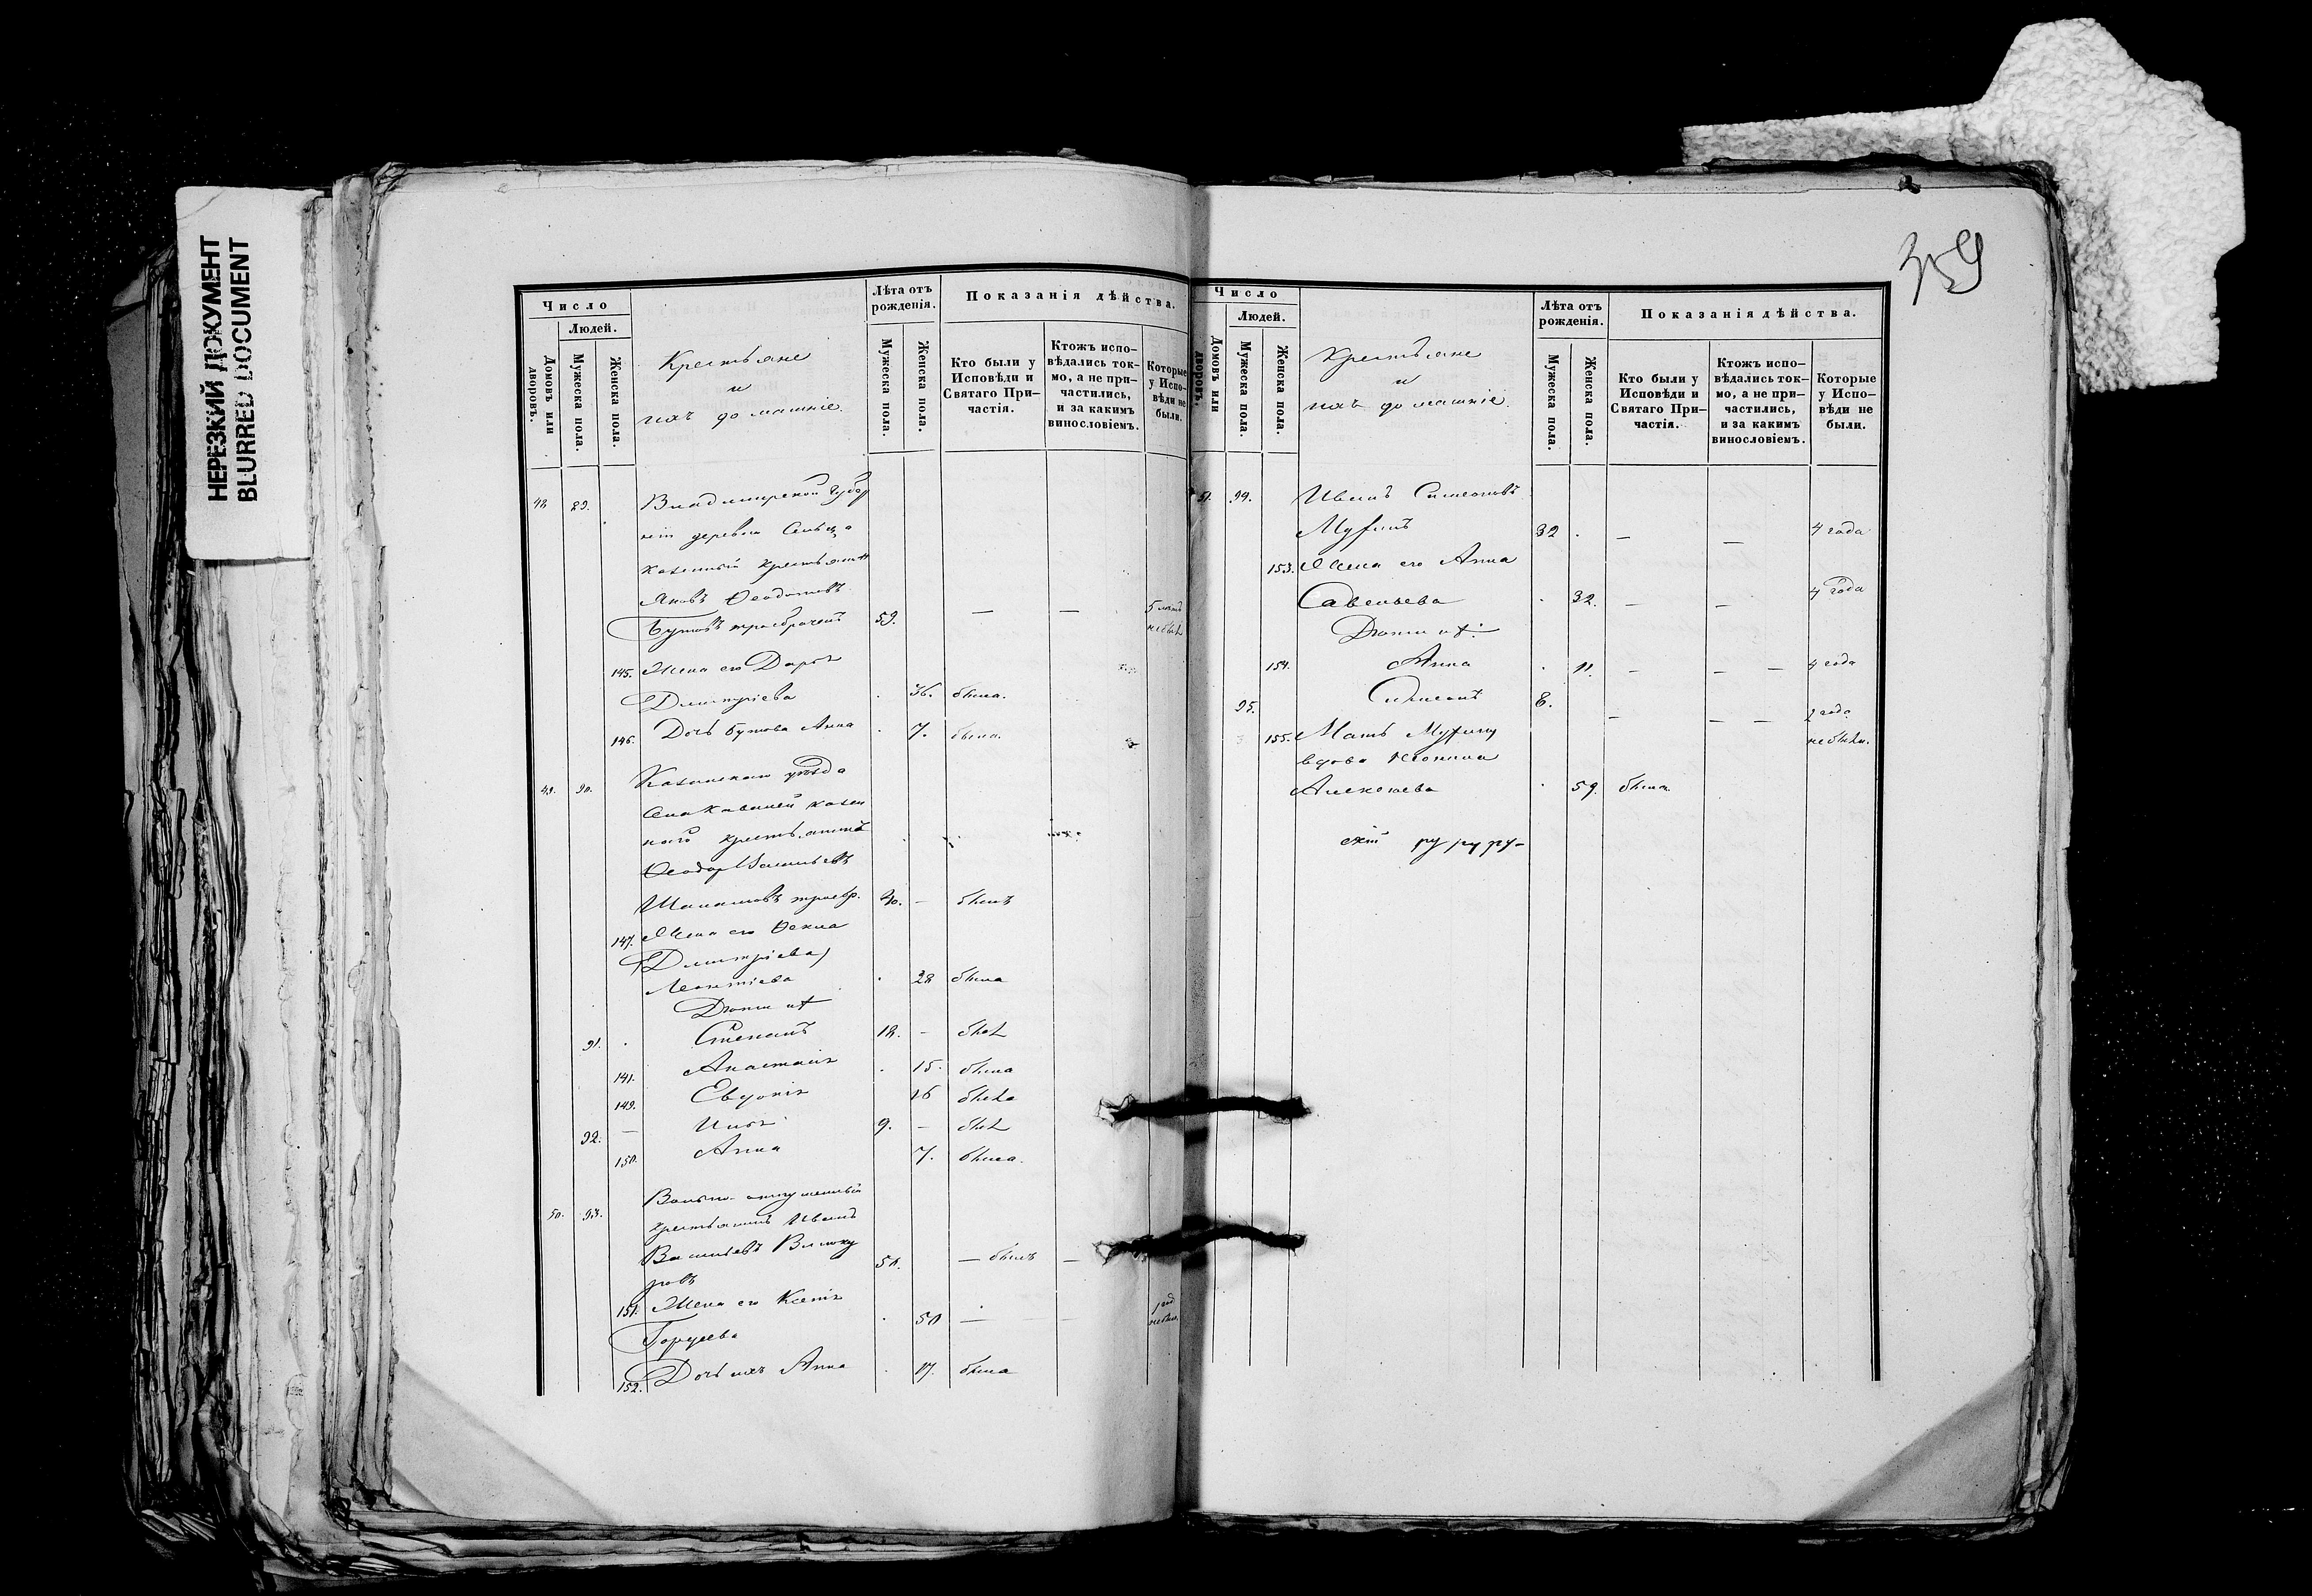 НЕРЕЗКИЙ ДОКУМЕНТ
BLURRED DOCUMENT
359
Число
Людей.
Домовъ или дворовъ.
Мужеска пола.
Женска пола.
Крестьяне
и
ихъ домашніе.
Лѣта отъ рожденія.
Мужеска пола.
Женска пола.
Показанія дѣйства.
Кто были у Исповѣди и Святаго При-частія.
Ктожъ испо-вѣдались ток-мо, а не при-частились, и за какимъ винословіемъ.
Которые у Испо-вѣди не были.
48 89. Владимирской Губер
ніи деревни Сельца
казенный крестьянин
Яковъ Ѳеодотовъ
59. — — 5 лѣтъ не былъ
145. Жена его Дарья
Дмитріева 36. была.
146. Дочь Бутова Анна 7. была.
49. 90. Казанскаго уѣзда
казен
наго крестьянина
Ѳеодор Васильевъ
40. — былъ
147. Жена его Ѳекла
(Дмитріева)
Леонтіева 38 была
Дѣти ихъ
91. Степанъ 18. — былъ
141. Анастасія 15. была
149. Евдокія 16 была
92. — Илья 9. — былъ
150. Анна 7. была.
50. 93. Вольно-отпущенный
крестьянинъ Иванъ
Васильевъ Виноку
ровъ 50. — былъ —
151. Жена его Ксенія 50 — — 1 год не был.
Гордеева
152. Дочь ихъ Анна 17. была
Число
Людей.
Домовъ или дворовъ.
Мужеска пола.
Женска пола.
Крестьяне
и
ихъ домашніе.
Лѣта отъ рожденія.
Мужеска пола.
Женска пола.
Показанія дѣйства.
Кто были у Исповѣди и Святаго При-частія.
Ктожъ испо-вѣдались ток-мо, а не при-частились, и за какимъ винословіемъ.
Которые у Испо-вѣди не были.
51. 94. Иванъ Симеоновъ
Муринъ 32 — — 4 года
153. Жена его Анна
Савельева 32. — — 4 года
Дѣти ихъ:
154. Анна 11. — — — 4 года
95. Симеонъ 8. — — — 2 года
не были.
155. Мать Мурину
вдова
Алексеева 59. была